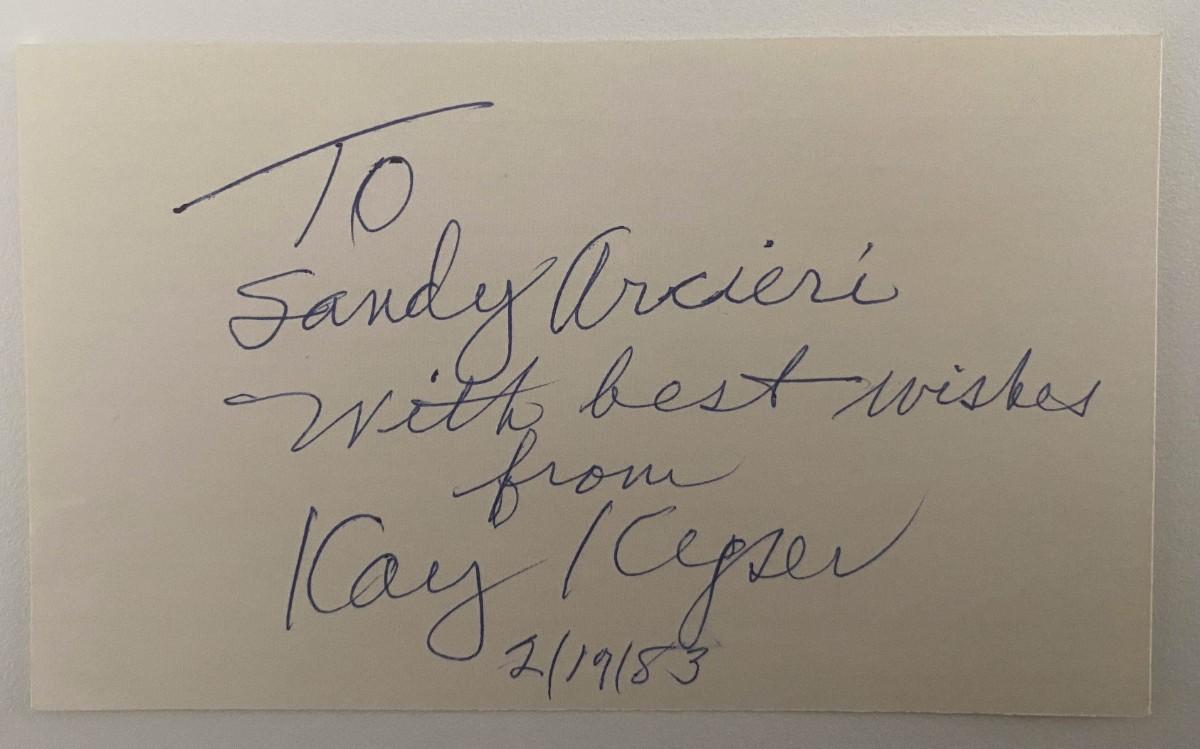 To
Sandy Arcieri
With best wishes
from
Kay Kyser
2/19/83